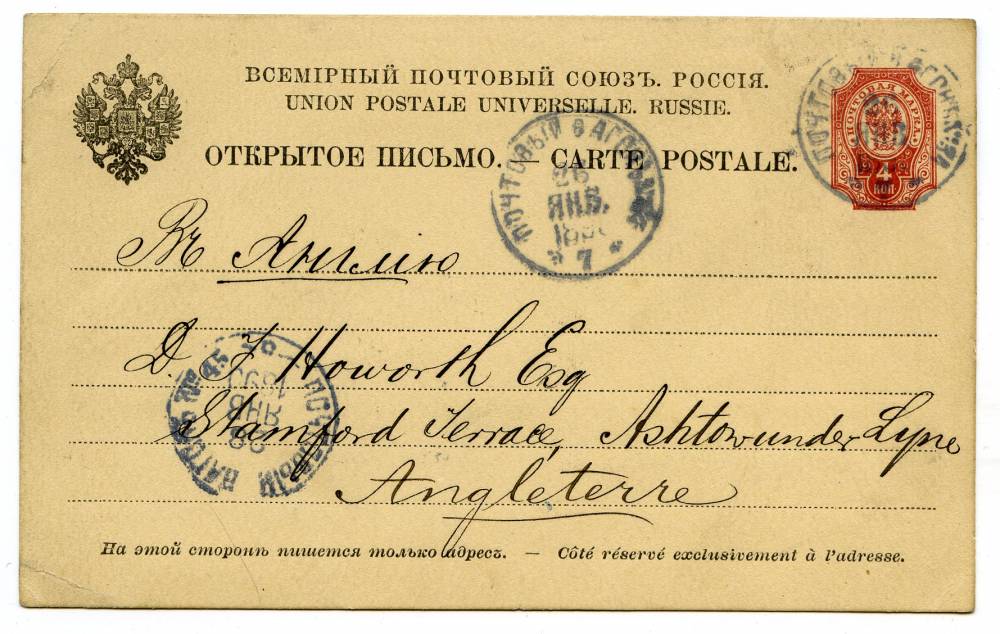 ВСЕМІРНЫЙ ПОЧТОВЫЙ СОЮЗЪ. РОССІЯ.
UNION POSTALE UNIVERSELLE. RUSSIE.
ОТКРЫТОЕ ПИСЬМО. — CARTE POSTALE.
ПОЧТОВАЯ МАРКА
4
КОП
ПОЧТОВЫЙ ВАГОНЪ
26
ЯНВ.
7
Въ Англію
D. F Howorth Esq
Stamford Terrace, Ashton under Lyne
Angleterre
ПОЧТОВЫЙ ВАГОНЪ № 45
ЯНВ
На этой сторонѣ пишется только адресъ. — Côté réservé exclusivement à l'adresse.